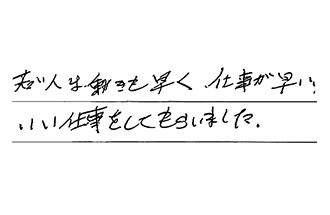 若い人は動きも早く、仕事が早い、
いい仕事をしてもらいました。